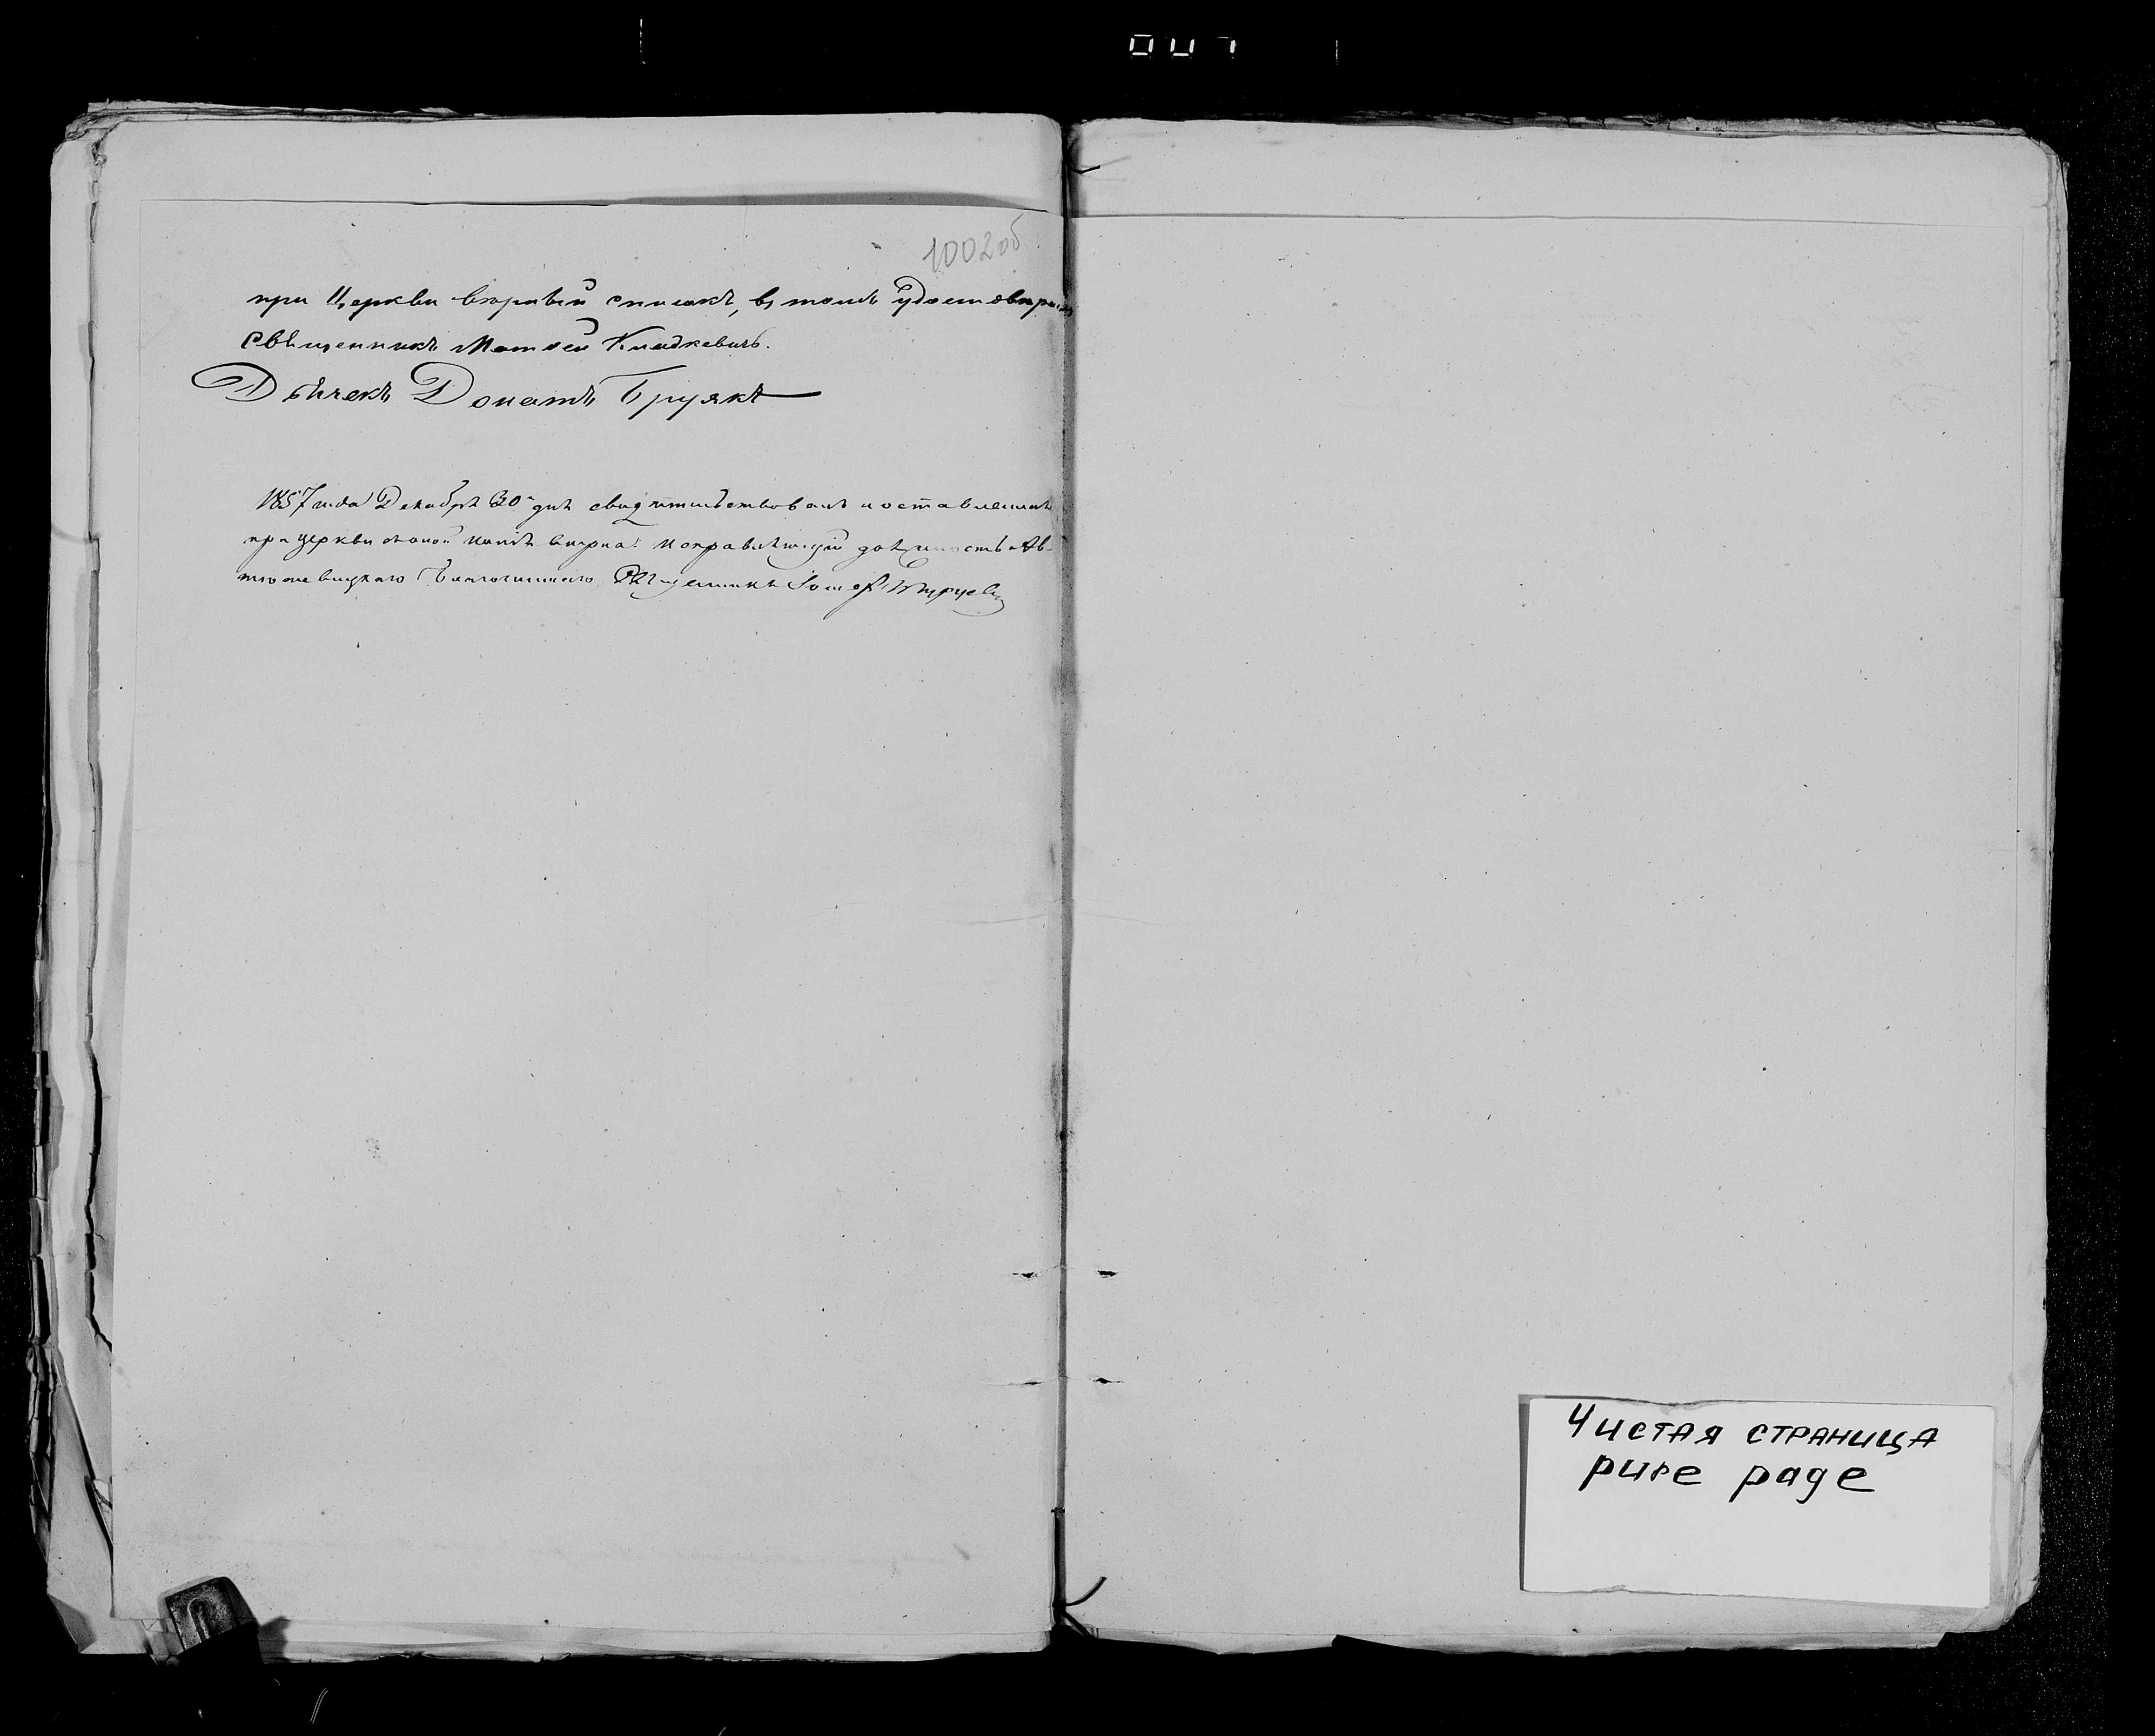 1002об
при Церкви вѣрный списокъ, въ томъ удостовѣряемъ
Священникъ Матѳей Кладкевичъ.
Дьячекъ Донатъ Груякъ
1857 года Декабря 30 дня свидѣтельствовалъ и оставленная
при церкви оной копія вѣрна. Исправляющій должность Ав-
Благочиннаго Священникъ
Чистая страница
pure page